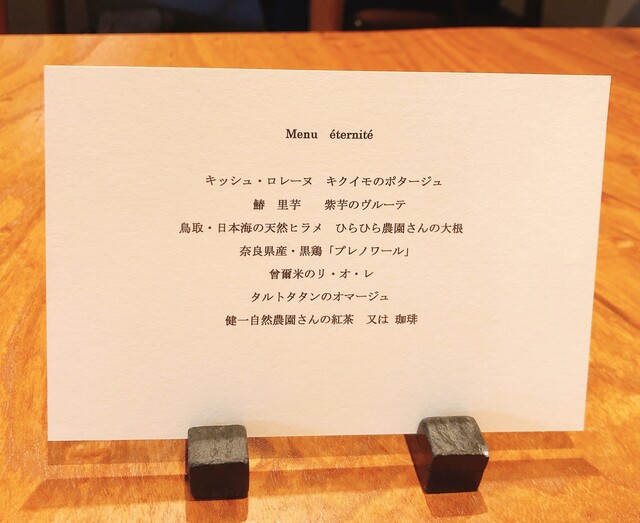 Menu éternité
キッシュ・ロレーヌ　キクイモのポタージュ
鰆　里芋　　紫芋のヴルーテ
鳥取・日本海の天然ヒラメ　ひらひら農園さんの大根
奈良県産・黒鶏「プレノワール」
曾爾米のリ・オ・レ
タルトタタンのオマージュ
健一自然農園さんの紅茶　又は 珈琲